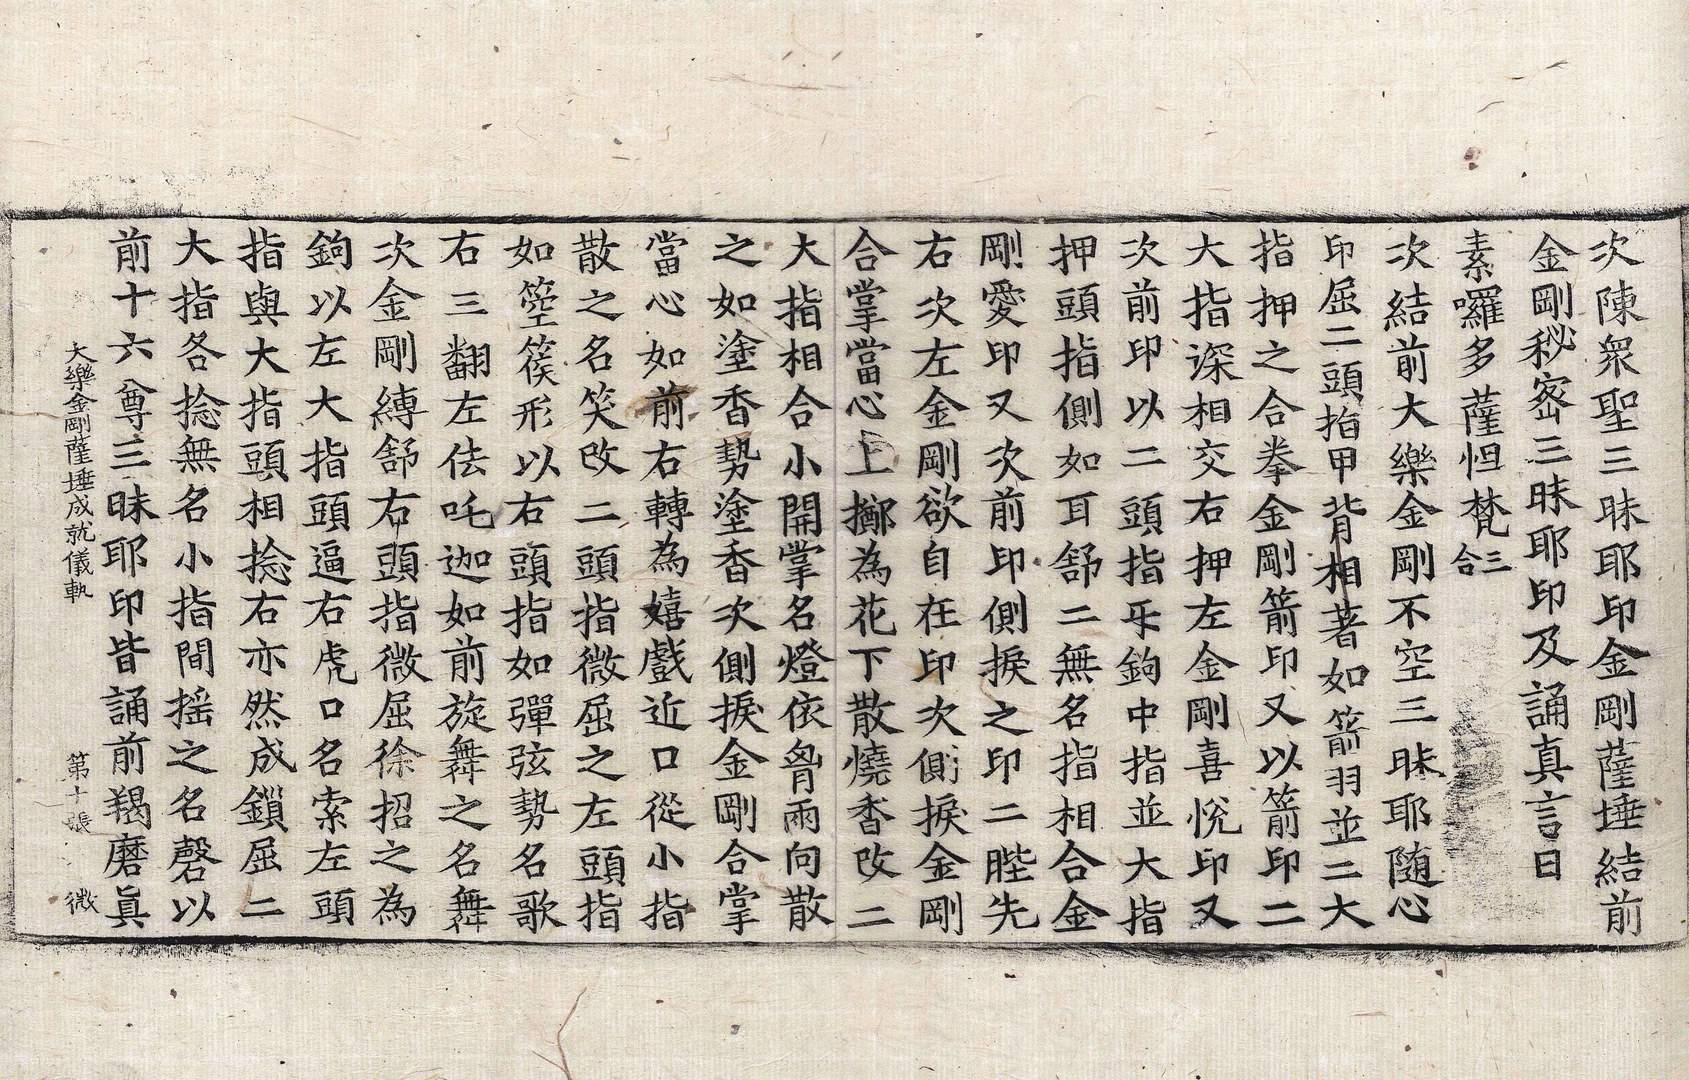 次陳衆聖三昧耶印金剛薩埵結前
金剛秘密三昧耶印及誦真言曰
素囉多薩怛梵三合
次結前大樂金剛不空三昧耶随心
印屈二頭指甲背相著如箭羽並二大
指押之合拳金剛箭印又以箭印二
大指深相交右押左金剛喜悅印又
次前印以二頭指㸦鉤中指並大指
押頭指側如耳舒二無名指相合金
剛愛印又次前印側捩之印二䏶先
右次左金剛欲自在印次側捩金剛
合掌當心上擲為花下散燒香改二
大指相合小開掌名燈依胷兩向散
之如塗香勢塗香次側捩金剛合掌
當心如前右轉為嬉戲近口從小指
散之名笑改二頭指微屈之左頭指
如箜篌形以右頭指如彈弦勢名歌
右三翻左佉吒迦如前旋舞之名舞
次金剛縛舒右頭指微屈徐招之為
鉤以左大指頭逼右虎口名索左頭
指與大指頭相捻右亦然成鎖屈二
大指各捻無名小指間搖之名磬以
前十六尊三昧耶印皆誦前羯磨眞
大樂金剛薩埵成就儀軌 第十張 微